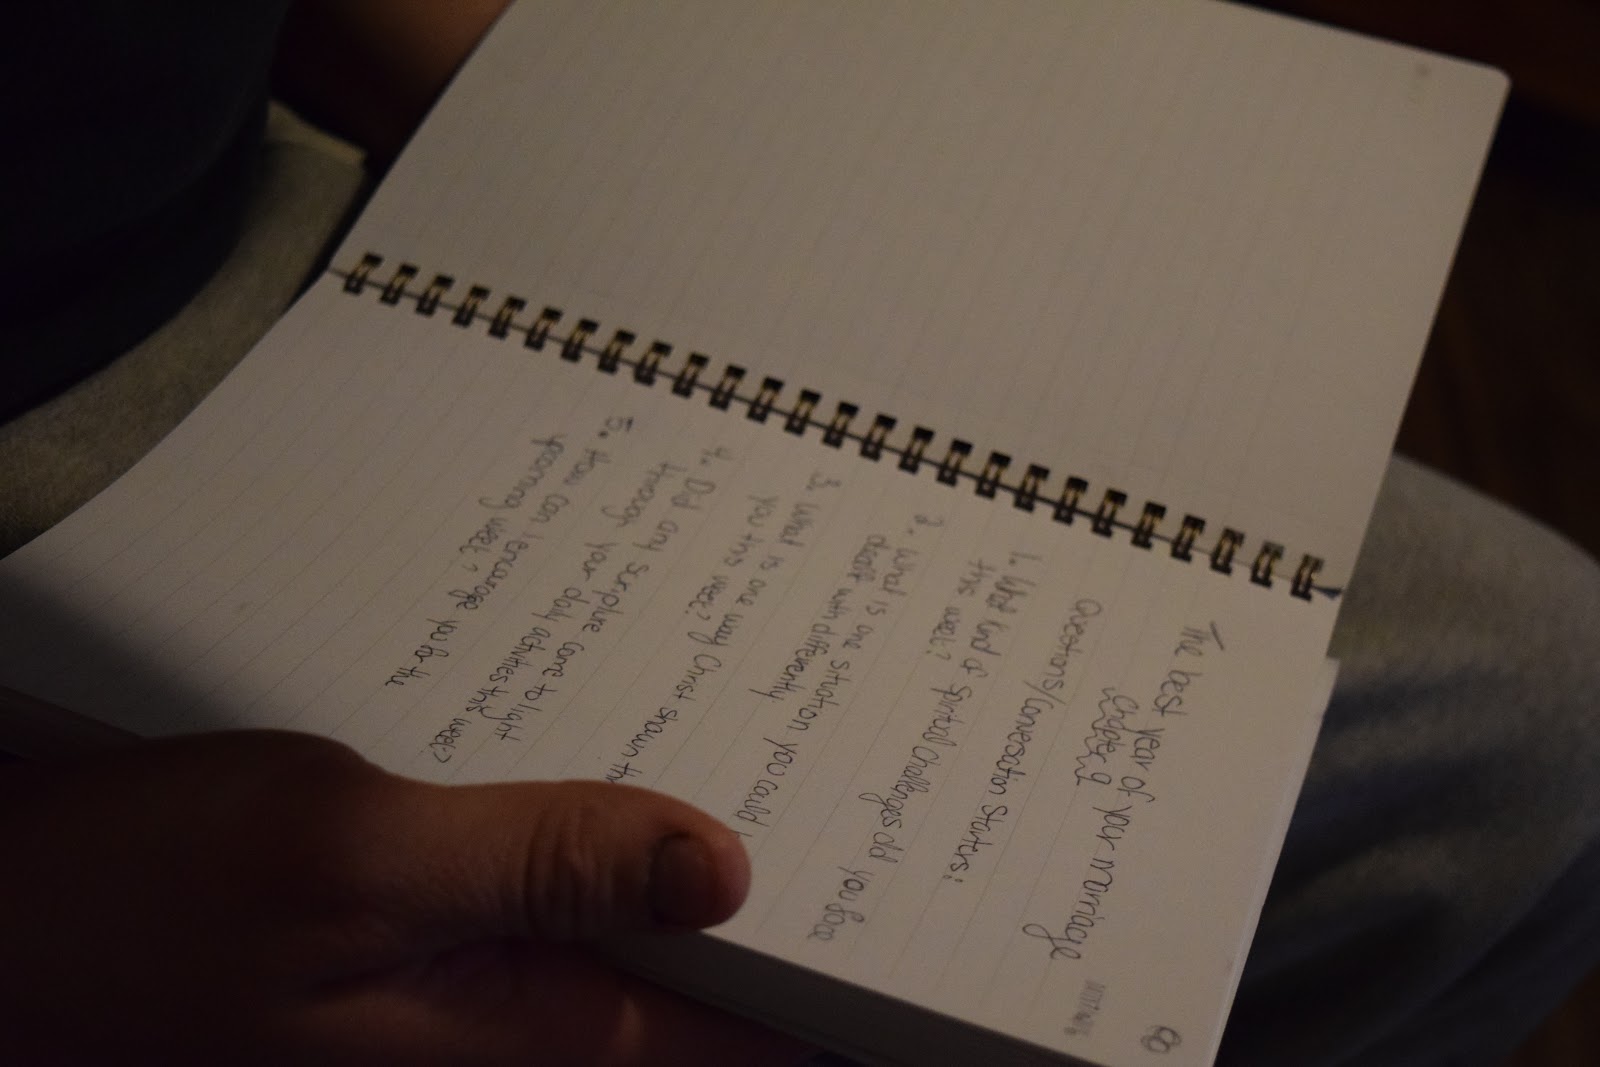 The best year of your marriage
Chapter 9
Questions/Conversation Starters:
1. What kind of spiritual challenges did you face
this week?
2. What is one situation you could
dealt with differently
3. What is one way Christ shawn thr
you this week?
4. Did any scripture come to light
through your daily activities this week?
5. How can I encourage you for the
week?